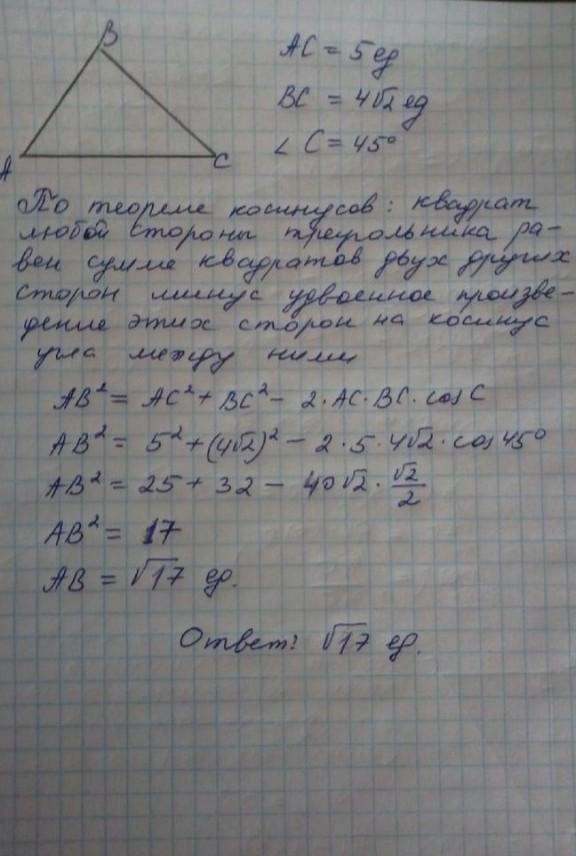 B
AC = 5 ед
BC = 4√2 ед
∠ C = 45°
A
C
По теореме косинусов: квадрат
любой стороны треугольника ра-
вен сумме квадратов двух других
сторон минус удвоенное произве-
дение этих сторон на косинус
угла между ними
AB² = AC² + BC² - 2·AC·BC·cos C
AB² = 5² + (4√2)² - 2·5·4√2·cos 45°
AB² = 25 + 32 - 40√2 · √2/2
AB² = 17
AB = √17 ед.
Ответ: √17 ед.